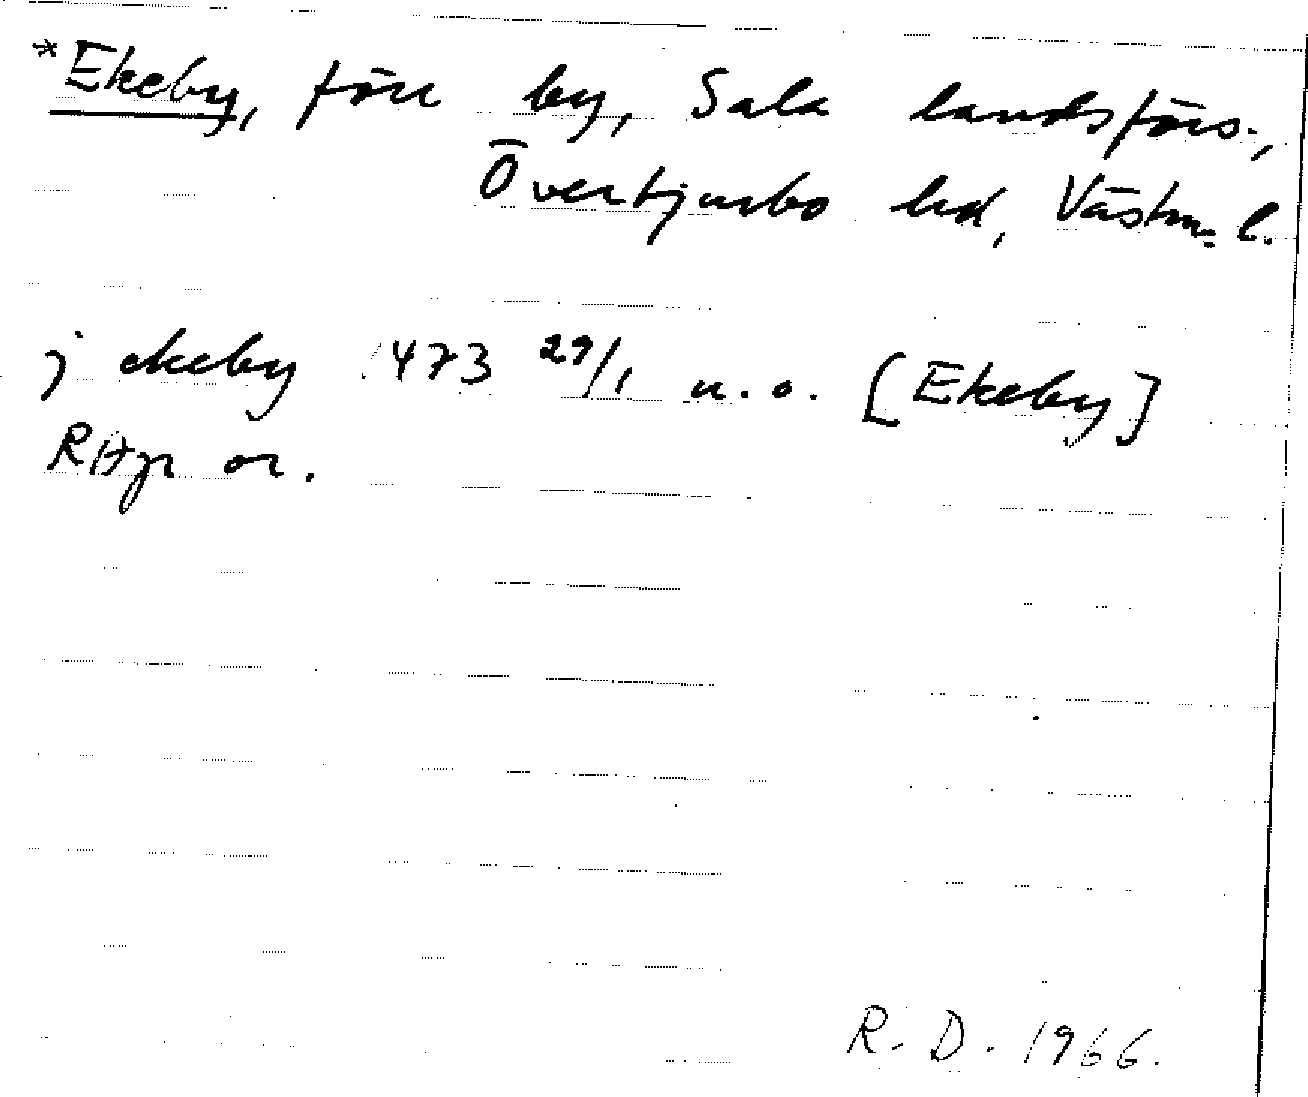 *Ekeby, förr by, Sala landsförs.,
Övertjurbo hd, Västm. l.
j ekeby 1473 29/1 u. o. [Ekeby]
RAp or.
R. D. 1966.